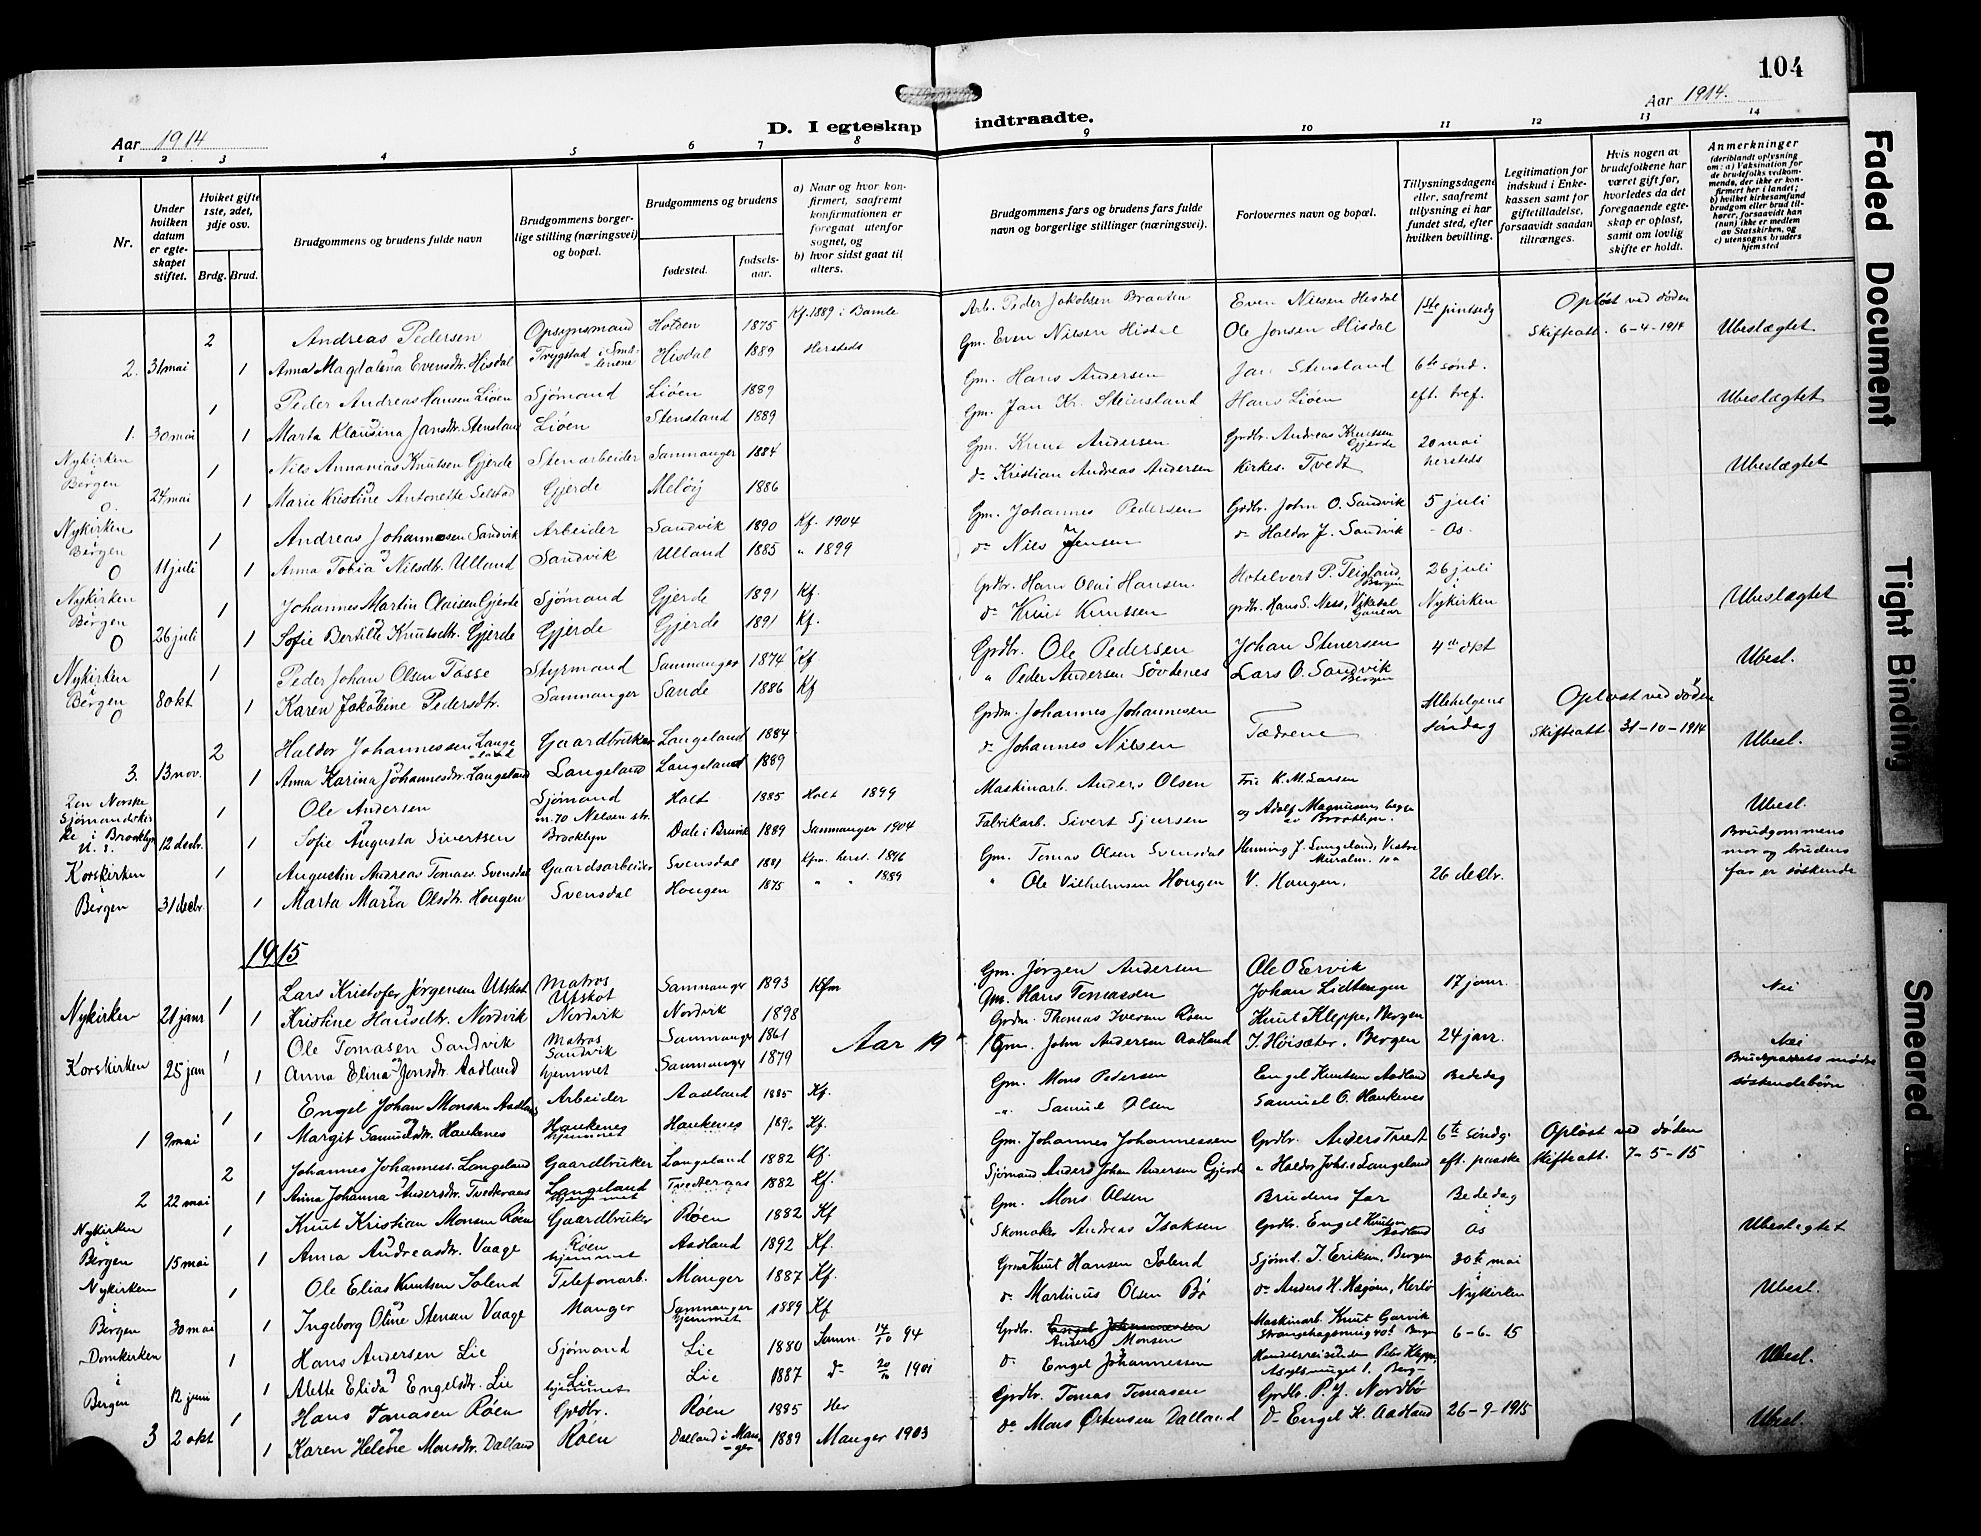 104
Aar 1914
D. I egteskap indtraadte.
Aar 1914.
1 2 3 4 5 6 7 8 9 10 11 12 13 14
Nr.
Under hvilken datum er egteskapet stiftet.
Hvilket gifte 1ste, 2det, 3dje osv.
Brdg. Brud.
Brudgommens og brudens fulde navn
Brudgommens borgerlige stilling (næringsvei) og bopæl.
Brudgommens og brudens
fødested.
fødselsaar.
a) Naar og hvor konfirmert, saafremt konfirmationen er foregaat utenfor sognet, og
b) hvor sidst gaat til alters.
Brudgommens fars og brudens fars fulde navn og borgerlige stillinger (næringsvei).
Forlovernes navn og bopæl.
Tillysningsdagene eller, saafremt tillysning ei har fundet sted, efter hvilken bevilling.
Legitimation for indskud i Enkekassen samt for giftetilladelse, forsaavidt saadan tiltrænges.
Hvis nogen av brudefolkene har været gift før, hvorledes da det foregaaende egteskap er opløst, samt om lovlig skifte er holdt.
Anmerkninger
(deriblandt oplysning om: a) Vaksination for de brudefolks vedkommende, der ikke er konfirmert her i landet; b) hvilket kirkesamfund brudgom eller brud tilhører, forsaavidt han (hun) ikke er medlem av Statskirken, og c) utensogns bruders hjemsted
2 Andreas Pedersen Opsynsmand Holden 1875 Kf. 1889 i Bamle Arb. Peder Jakobsen Braaten Even Nilsen Hisdal 1ste pintsedg Opløst ved døden
2. 31 mai 1 Anna Magdalena Evensdtr. Hisdal Trygstad i Hisdal 1889 Hersteds Gm. Even Nilsen Hisdal Ole Jonsen Hisdal Skifteatt. 6-4-1914 Ubeslægtet
1 Peder Andreas Hansen Liøen Sjømand Liøen 1889 Gm. Hans Andersen Jan Stensland 6te sønd.
1. 30 mai 1 Marta Klausina Jansdtr. Stensland Liøen Stensland 1889 Gm. Jan Kr. Steinsland Hans Liøen eft. tref. Ubeslægtet
Nykirken i Bergen 1 Nils Annanias Knutsen Gjerde Stenarbeider Samnanger 1884 Gm. Knut Andersen Grdbr. Andreas Knutsen Gjerde 20 mai
0. 24 mai 1 Marie Kristine Antonette Selstad Gjerde Meløy 1886 do Kristian Andreas Andersen Kirkes. Tvedt hersteds Ubeslægtet
Nykirken i Bergen 1 Andreas Johannesen Sandvik Arbeider Sandvik 1890 Kf. 1904 Gm. Johannes Pedersen Grdbr. John O. Sandvik 5 juli
0 11 juli 1 Anna Tobia Nilsdtr. Ulland Sandvik Ulland 1885 " 1899 do Nils Jensen do Haldor J. Sandvik - Os
Nykirken i Bergen 1 Johannes Martin Olaisen Gjerde Sjømand Gjerde 1891 Kf. Grdbr. Hans Olai Hansen Hotelvert P. Teigland Bergen 26 juli
0 26 juli 1 Sofie Bertilde Knutsdtr. Gjerde Gjerde Gjerde 1891 Kf. do Knut Knutsen grdbr. Hans S. Ness, Nykirken Ubeslægtet
Nykirken i Bergen 1 Peder Johan Olsen Tøsse Styrmand Samnanger 1874 Kf Grdbr. Ole Pedersen Johan Stenersen 4de okt
0 8 okt 1 Karen Jakobine Pedersdtr. Samnanger Sande 1886 Kf " Peder Andersen Søvdenes Lars O. Sandvik Bergen Ubesl.
2 Haldor Johannessen Langeland Gaardbruker Langeland 1884 Grdm. Johannes Johannesen Fædrene Allehelgens Opløst ved døden
3. 13 nov. 1 Anna Karina Johannesdtr. Langeland Langeland Langeland 1889 do Johannes Nilsen søndag Skifteatt. 31-10-1914 Ubesl.
Den Norske Sjømandskirke i Brooklyn U. S. 1 Ole Andersen Sjømand Holt 1885 Holt 1899 Maskinarb. Anders Olsen Frk. K. M. Larsen
12 decbr. 1 Sofie Augusta Sivertsen m. 70 Nelsen str. Brooklyn Dale i Bruvik 1889 Samnanger 1904 Fabrikarb. Sivert Sjursen og Adolf Magnusen, begge av Brooklyn. Ubesl.
Korskirken 1 Augustin Andreas Tomass. Svensdal Gaardsarbeider Svensdal 1881 Kfm. herst. 1896 Gm. Tomas Olsen Svensdal Henning J. Langeland, Vestre Muralm. 10a Brudgommens mor og brudens far er søskende
Bergen 31 decbr. 1 Marta Maria Olsdtr. Hougen Svensdal Hougen 1875 " " 1889 " Ole Vilhelmsen Hougen V. Haugen. 26 decbr.
1915
1 Lars Kristofer Jørgensen Utskot Matros Utskot Samnanger 1893 Kfm Gm. Jørgen Andersen Ole O Eervik 17 janr. Nei
Nykirken 21 janr 1 Kristine Hansdtr. Nordvik Nordvik Nordvik 1898 Gm. Hans Tomassen Johan Lidtangen
1 Ole Tomasen Sandvik Matros Sandvik Samnanger 1861 Aar 19 Grdm. Thomas Iversen Røen Knut Kleppe, Bergen
Korskirken 25 jan 1 Anna Elina Jonsdtr. Aadland hjemmet Samnanger 1879 Gm. John Andersen Aadland I. Høisæter, Bergen 24 janr. Nei
1 Engel Johan Monsen Aadland Arbeider Aadland 1885 Kf. Gm. Mons Pedersen Engel Knutsen Aadland Bededag Brudparrets mødre
1 9 mai 1 Margit Samuelsdtr. Haukenes Haukenes hjemmet Haukenes Kf. -"- Samuel Olsen Samuel O. Haukenes søskendebørn
2 Johannes Johanness. Langeland Gaardbruker Langeland 1882 Kf. Gm. Johannes Johannessen Grdbr. Anders Tvedt 6te søndg. Opløst ved døden
2 22 mai 1 Anna Johanna Andersdtr. Tvedteraas Langeland hjemmet Tvedteraas 1882 Kf. Sjømand Anders Johan Andersen Gjerde " Haldor Johs. Langeland eft. paaske Skifteatt. 7-5-15
Nykirken i 1 Knut Kristian Monsen Røen Gaardbruker Røen 1882 Kf Gm. Mons Olsen Brudens far Bededag
Bergen 15 mai 1 Anna Andreasdtr. Vaage Røen hjemmet Aadland 1892 Kf. Skomaker Andreas Isaksen Grdbr. Engel Knutsen Aadland Os Ubeslægtet
Nykirken i 1 Ole Elias Knutsen Soland Telefonarb. Manger 1887 Kf. Grm Knut Hansen Soland Sjømd. I. Eriksen, Bergen 30te mai
Bergen 30 mai 1 Ingeborg Oline Stenan Vaage Manger Samnanger hjemmet 1889 Kf do Martinus Olsen Bø do Anders H. Hagøen, Herlø i Nykirken Ubesl.
Domkirken i 1 Hans Andersen Lie Sjømand Lie 1880 Samn. 14/10 94 Grdbr. Engel Johannessen Anders Monsen Maskinarb. Knut Garvik Strangehagsmug 40d Bergen 6-6-15
Bergen 12 juni 1 Alette Elida Engelsdtr. Lie Lie hjemmet Lie 1887 do 20/10 1901 do Engel Johannessen Handelsreisende Peder Kleppe, Asylsmuget 1. Berg- Ubesl.
1 Hans Tomasen Røen Grdbr. Røen 1885 Her Grdbr. Tomas Tomasen Grdbr. P. J. Nordbø
3 2 okt 1 Karen Helene Monsdtr. Dalland Røen Dalland i Manger 1889 Manger 1903 do Mons Østensen Dalland do Engel K. Aadland 26-9-1915 Ubesl.
Faded Document
Tight Binding
Smeared